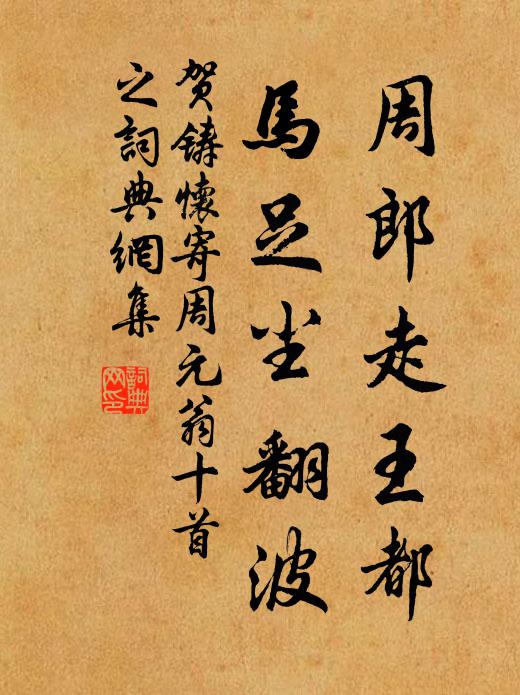 周郎走王都
馬足尘翻波
贺鑄懷寄周元翁十首
之詞典網集
詞典网印